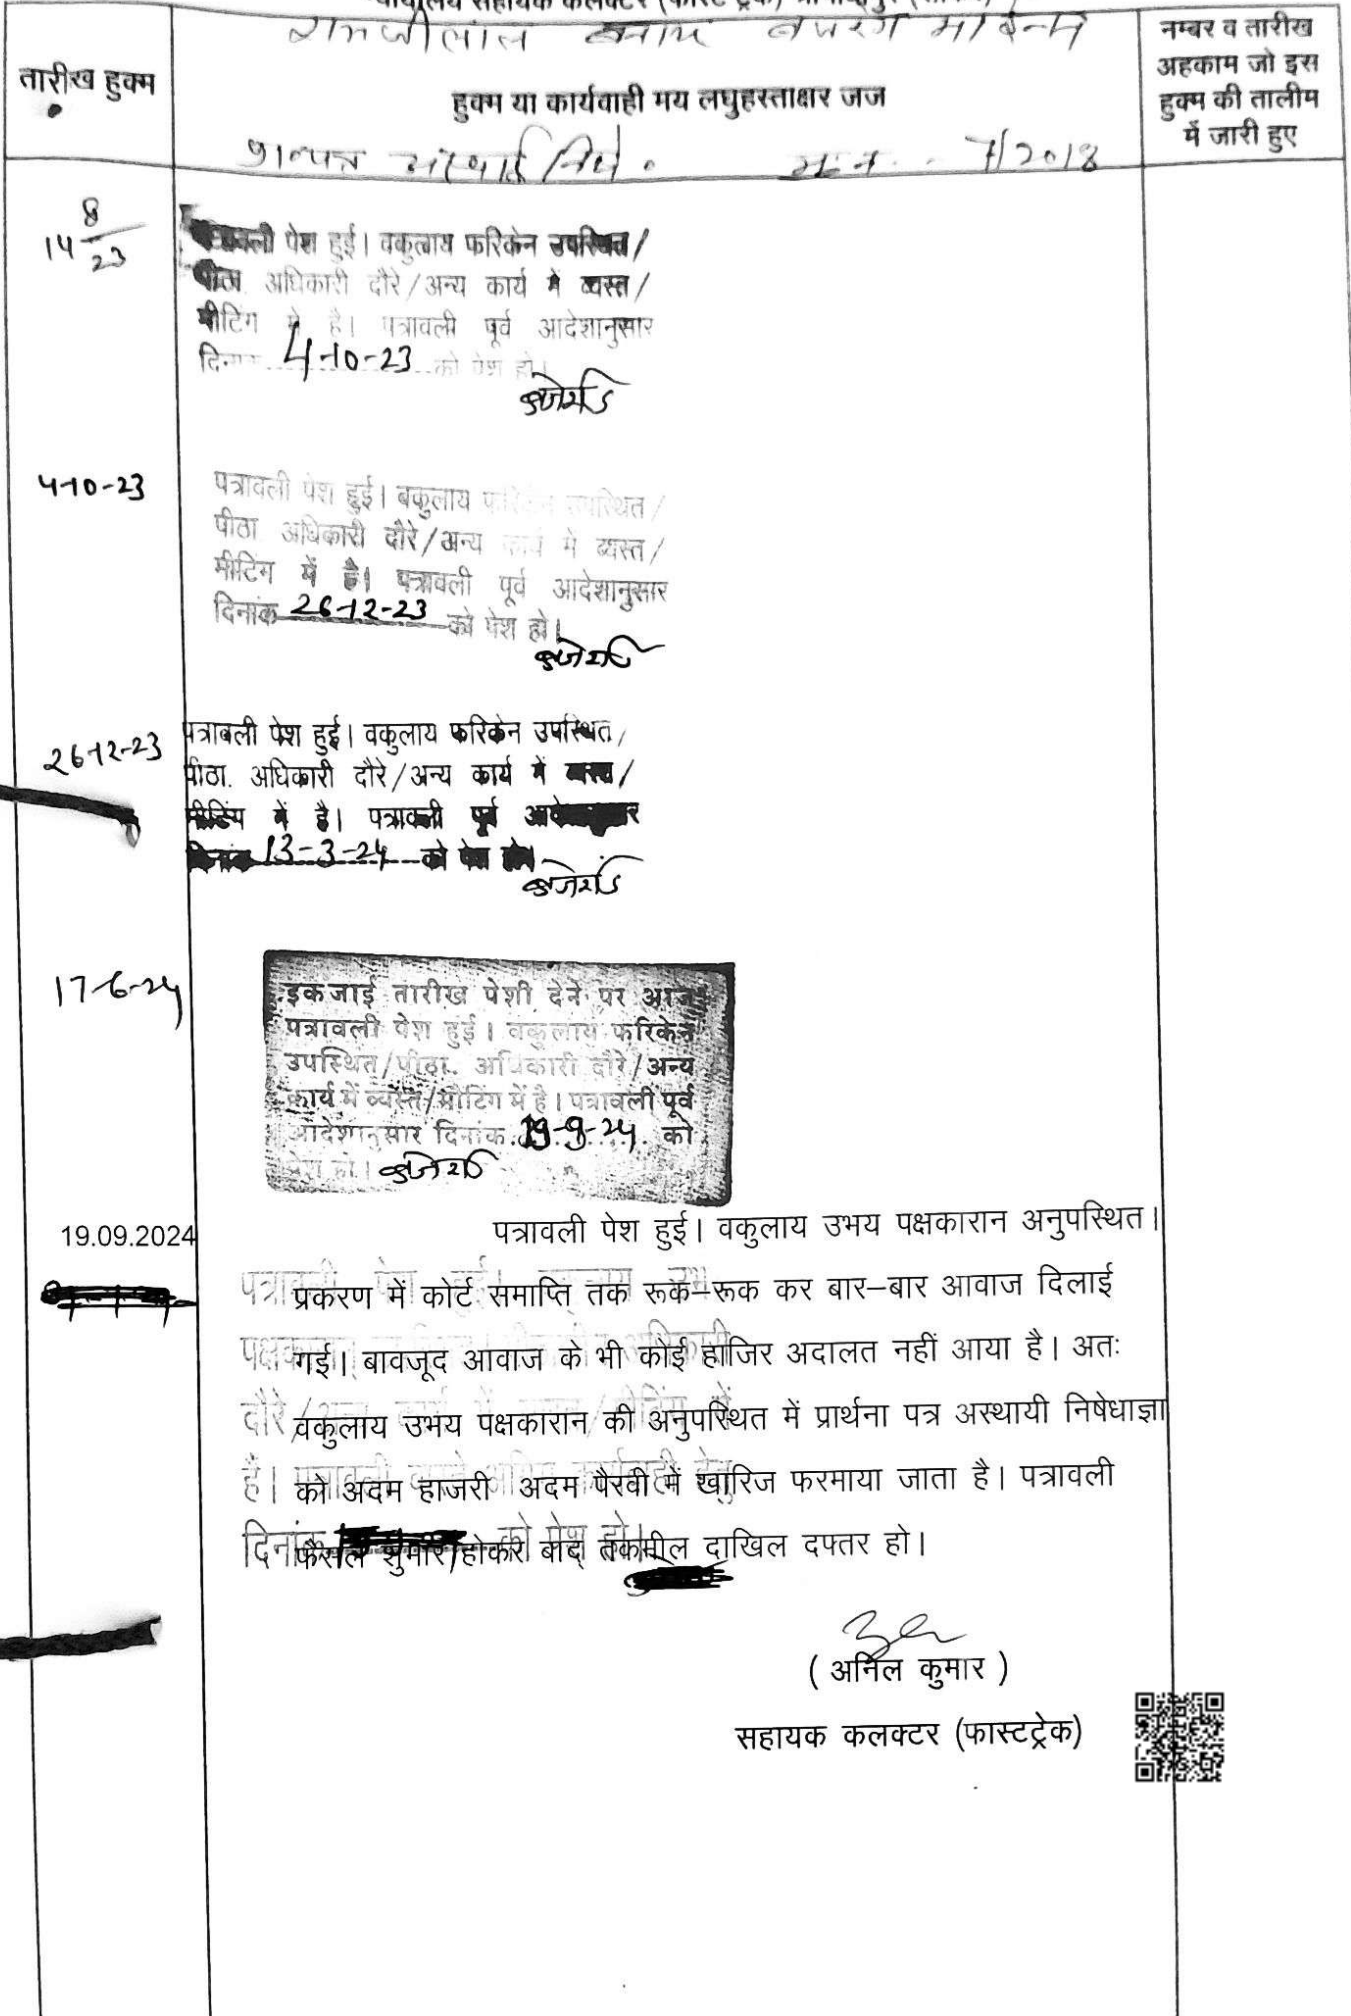 न्यायालय सहायक कलक्टर
रामजीलाल बनाम बजरंग
तारीख हुक्म
हुक्म या कार्यवाही मय लघुहस्ताक्षर जज
नम्बर व तारीख
अहकाम जो इस
हुक्म की तालीम
में जारी हुए
7/2018
14 8/23
पत्रावली पेश हुई। वकुलाय फरिकेन उपस्थित/
पीठा. अधिकारी दौरे/अन्य कार्य में व्यस्त/
मीटिंग में है। पत्रावली पूर्व आदेशानुसार
दिनांक 4-10-23 को पेश हो।
4-10-23
पत्रावली पेश हुई। वकुलाय फरिकेन उपस्थित/
पीठा अधिकारी दौरे/अन्य कार्य में व्यस्त/
मीटिंग में है। पत्रावली पूर्व आदेशानुसार
दिनांक 26-12-23 को पेश हो।
26-12-23
पत्रावली पेश हुई। वकुलाय फरिकेन उपस्थित/
पीठा. अधिकारी दौरे/अन्य कार्य में व्यस्त/
मीटिंग में है। पत्रावली पूर्व आदेशानुसार
दिनांक 13-3-24 को पेश हो।
17-6-24
इकजाई तारीख पेशी देने पर आज
पत्रावली पेश हुई। वकुलाय फरिकेन
उपस्थित/पीठा. अधिकारी दौरे/अन्य
कार्य में व्यस्त/मीटिंग में है। पत्रावली पूर्व
आदेशानुसार दिनांक 19-9-24 को
पेश हो।
19.09.2024
पत्रावली पेश हुई। वकुलाय उभय पक्षकारान अनुपस्थित।
प्रकरण में कोर्ट समाप्ति तक रूक–रूक कर बार–बार आवाज दिलाई
गई। बावजूद आवाज के भी कोई हाजिर अदालत नहीं आया है। अतः
वकुलाय उभय पक्षकारान की अनुपस्थित में प्रार्थना पत्र अस्थायी निषेधाज्ञा
को अदम हाजरी अदम पैरवी में खारिज फरमाया जाता है। पत्रावली
फैसल शुमार होकर बाद तकमील दाखिल दफ्तर हो।
( अनिल कुमार )
सहायक कलक्टर (फास्टट्रेक)